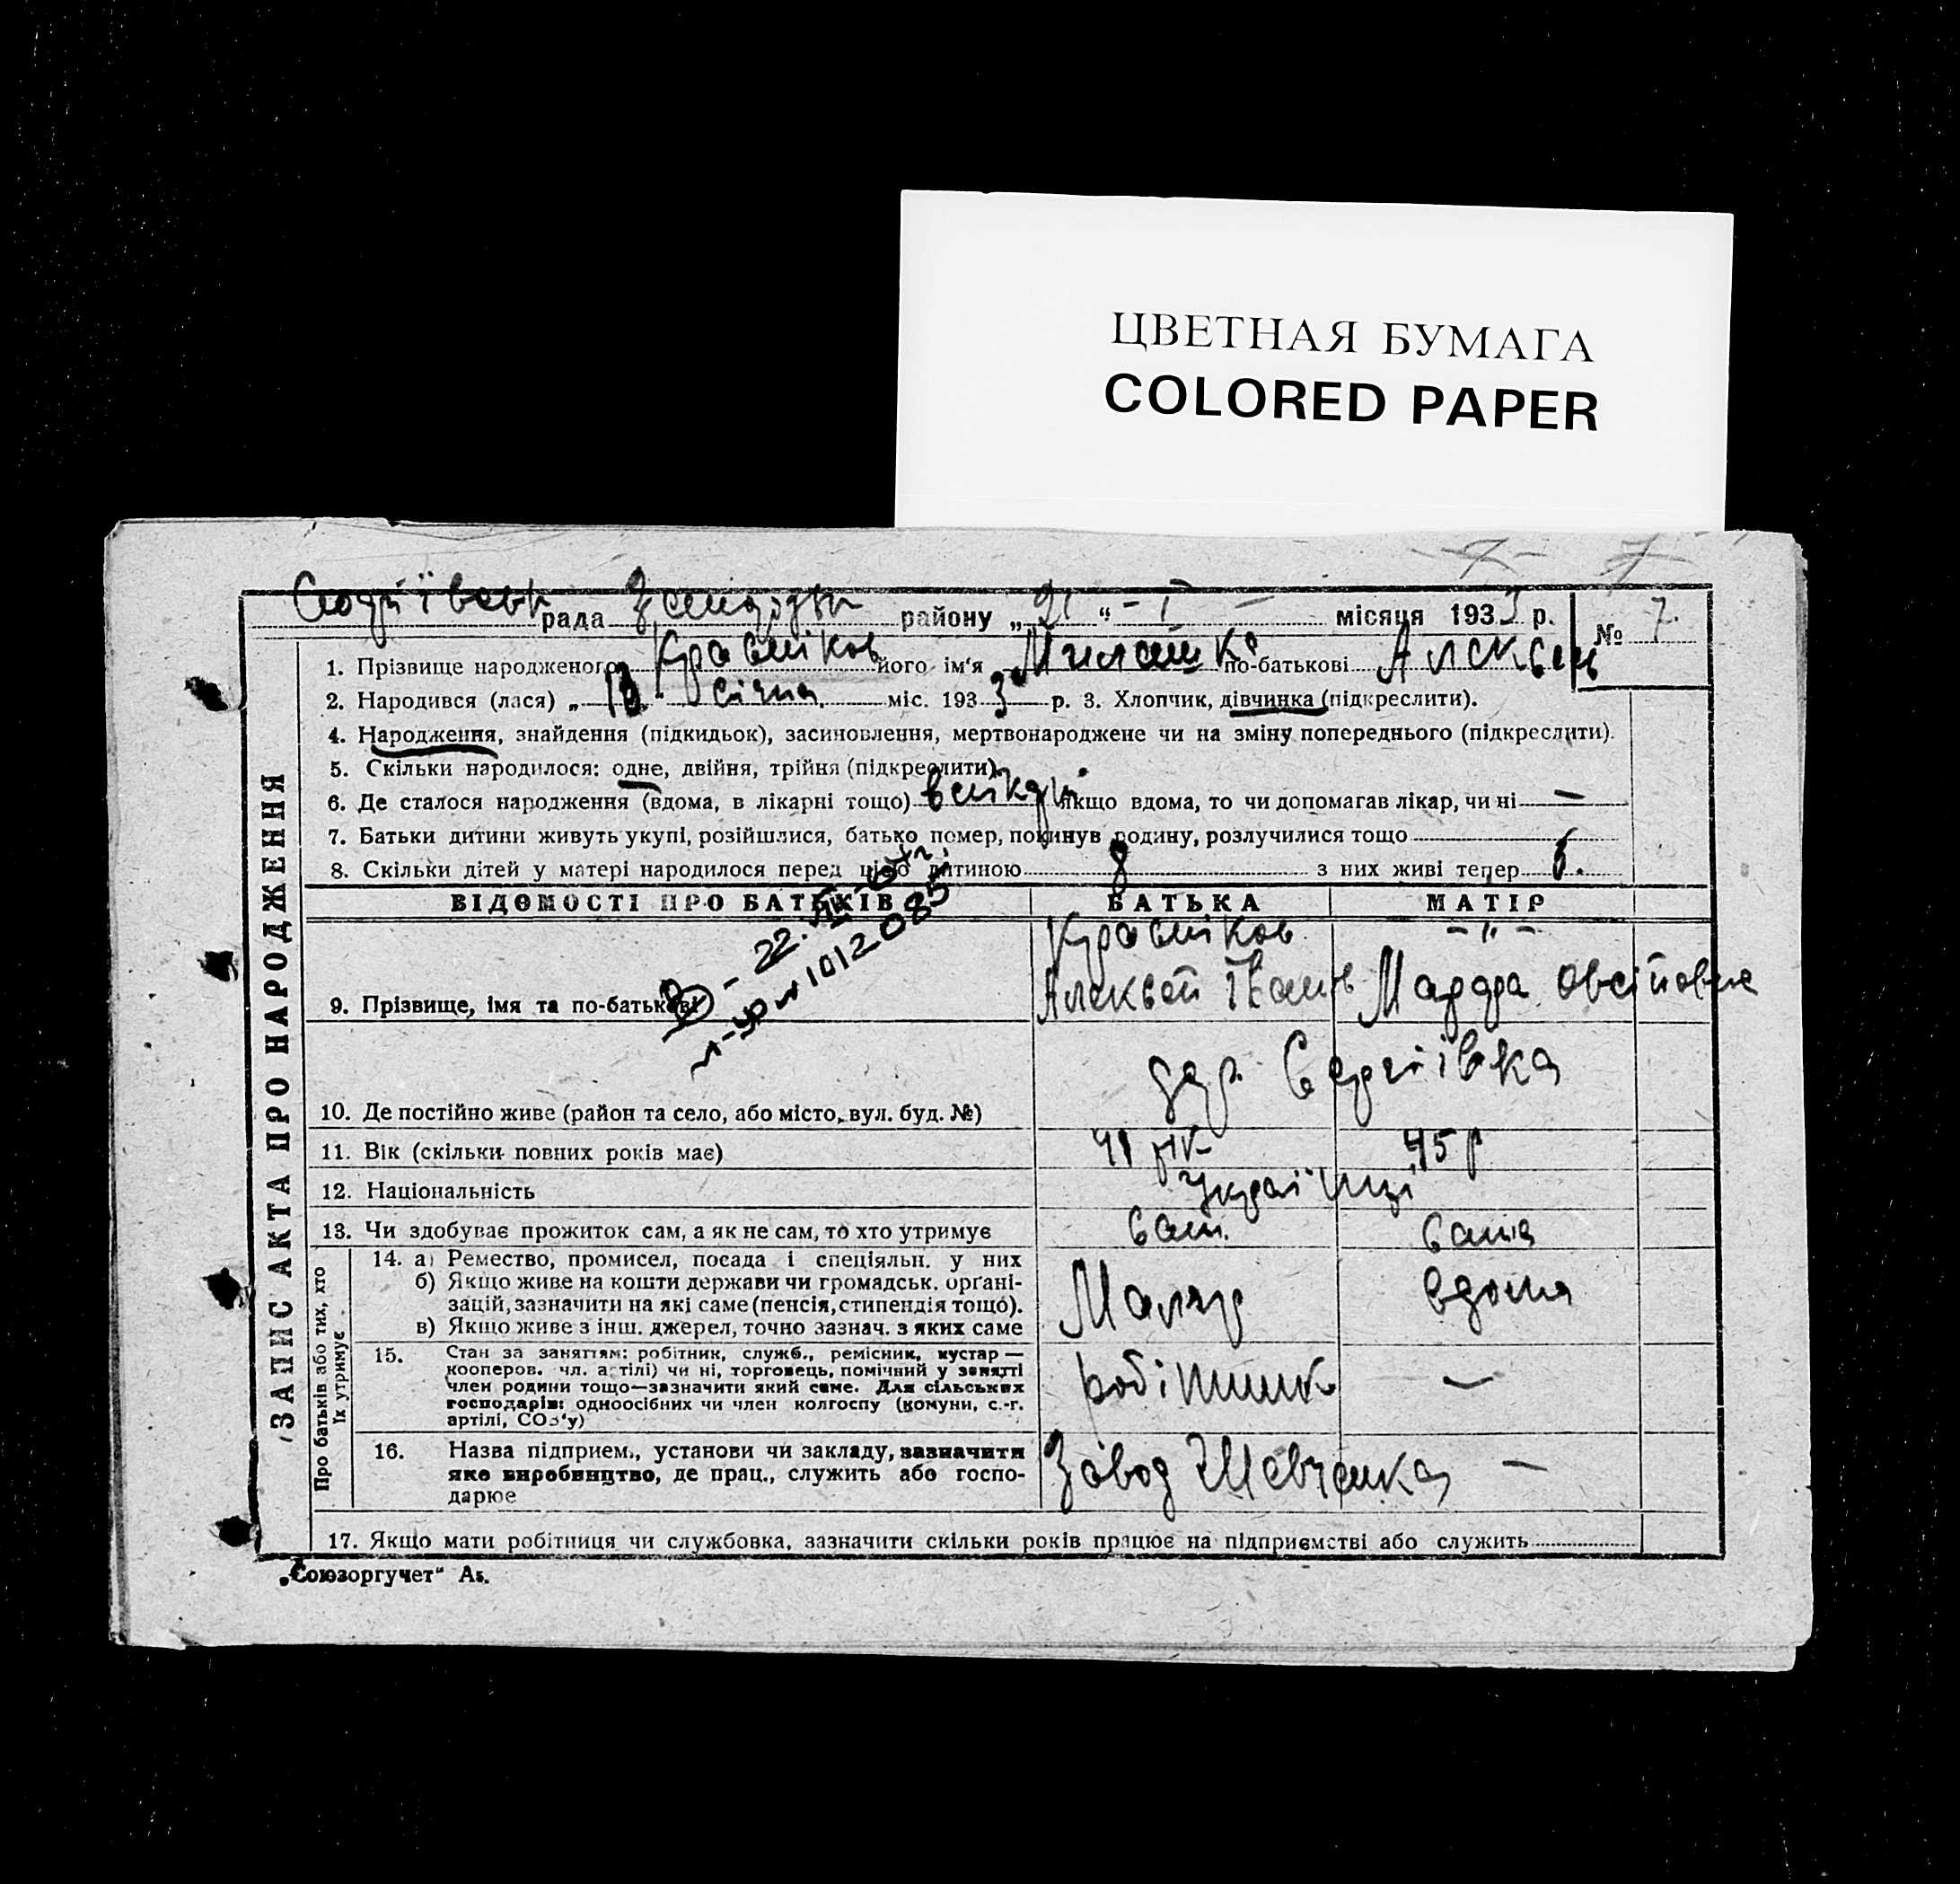 ЦВЕТНАЯ БУМАГА
COLORED PAPER
рада району „21“ - I - місяця 1933 р. № 7.
1. Прізвище народженого його ім'я по-батькові
2. Народився (лася) „ січня міс. 1933 р. 3. Хлопчик, дівчинка (підкреслити).
4. Народження, знайдення (підкидьок), засиновлення, мертвонароджене чи на зміну попереднього (підкреслити).
5. Скільки народилося: одне, двійня, трійня (підкреслити).
6. Де сталося народження (вдома, в лікарні тощо) Якщо вдома, то чи допомагав лікар, чи ні —
7. Батьки дитини живуть укупі, розійшлися, батько помер, покинув родину, розлучилися тощо
8. Скільки дітей у матері народилося перед цією дитиною 8 з них живі тепер
ВІДОМОСТІ ПРО БАТЬКІВ БАТЬКА МАТІР
- 22.
1012085
- " -
9. Прізвище, імя та по-батькові
Сергіївка
10. Де постійно живе (район та село, або місто, вул. буд. №)
11. Вік (скільки повних років має) 45 р
12. Національність Українці
13. Чи здобуває прожиток сам, а як не сам, то хто утримує сам. сама
14. а) Ремество, промисел, посада і спеціяльн. у них
б) Якщо живе на кошти держави чи громадськ. органі-
зацій, зазначити на які саме (пенсія, стипендія тощо).
в) Якщо живе з інш. джерел, точно зазнач. з яких саме
Маляр вдома
15. Стан за заняттям: робітник, служб., ремісник, кустар —
кооперов. чл. артілі) чи ні, торговець, помічний у занятті
член родини тощо—зазначити який саме. Для сільських
господарів: одноосібних чи член колгоспу (комуни, с.-г.
артілі, СОЗ'у)
робітник —
16. Назва підприєм., установи чи закладу, зазначити
яке виробництво, де прац., служить або госпо-
дарює
Завод Шевченка —
17. Якщо мати робітниця чи службовка, зазначити скільки років працює на підприємстві або служить
ЗАПИС АКТА ПРО НАРОДЖЕННЯ
Про батьків або тих, хто
їх утримує
„Союзоргучет“ А5.